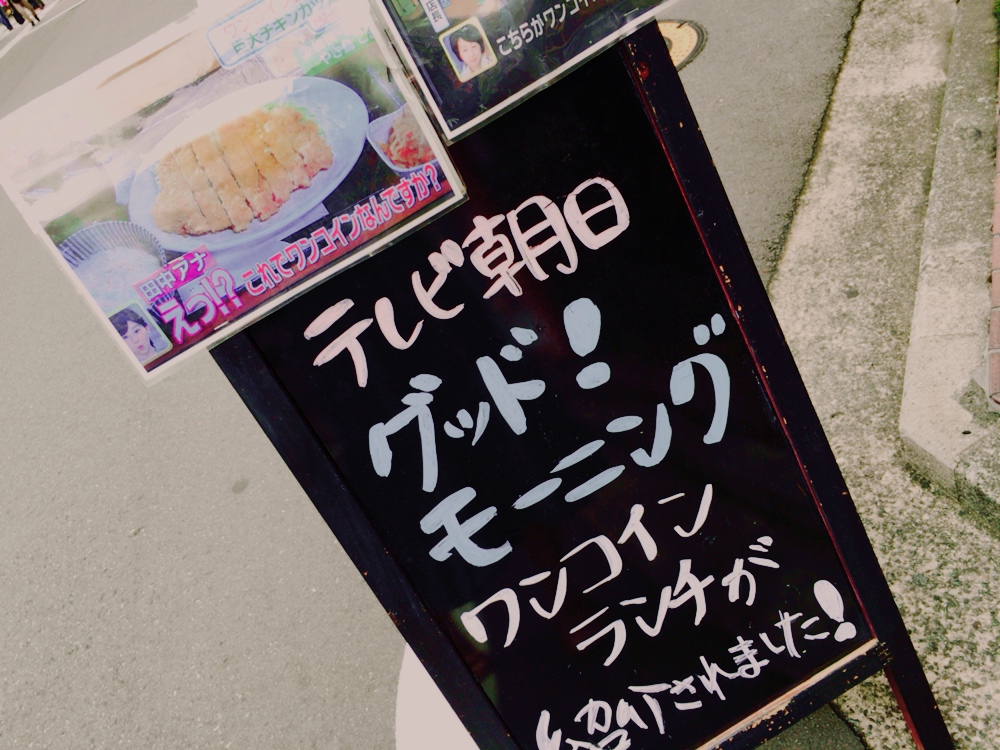 巨大チキンカツ
店長
こちらがワンコイン
田中アナ
えっ!? これでワンコインなんですか?
テレビ朝日
グッド!
モーニング
ワンコイン
ランチが
紹介されました!